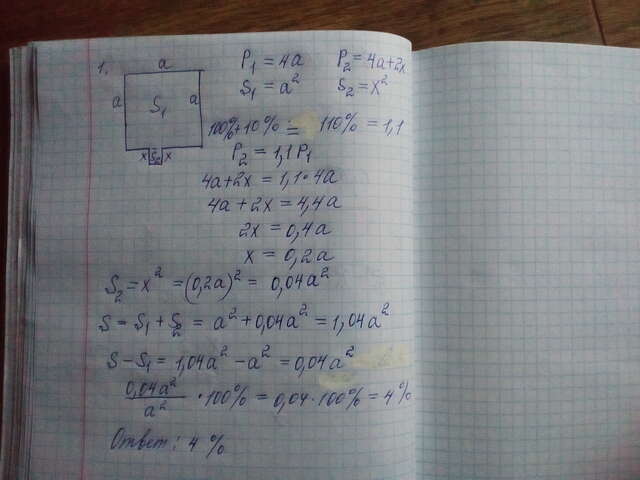 1.
a
a S₁ a
x S₂ x
P₁ = 4a P₂ = 4a+2x
S₁ = a² S₂ = x²
100%+10% = 110% = 1,1
P₂ = 1,1 P₁
4a+2x = 1,1·4a
4a + 2x = 4,4a
2x = 0,4a
x = 0,2a
S₂ = x² = (0,2a)² = 0,04a²
S = S₁ + S₂ = a² + 0,04a² = 1,04a²
S – S₁ = 1,04a² – a² = 0,04a²
0,04a²/a² · 100% = 0,04·100% = 4%
Ответ: 4%